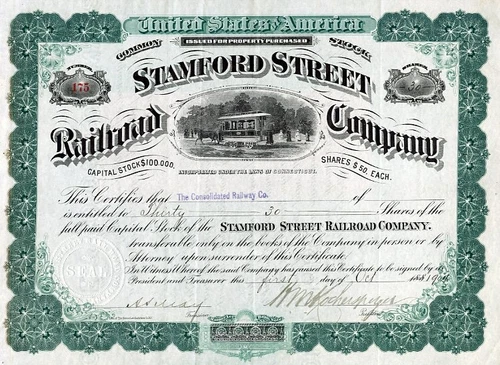 United States of America
ISSUED FOR PROPERTY PURCHASED
COMMON STOCK
NUMBER SHARES
175 30
STAMFORD STREET
Railroad Company
CAPITAL STOCK $100.000. SHARES $50. EACH.
INCORPORATED UNDER THE LAWS OF CONNECTICUT.
This Certifies that The Consolidated Railway Co. of
is entitled to Thirty 30 Shares of the
full paid Capital Stock of the STAMFORD STREET RAILROAD COMPANY.
transferable only on the books of the Company in person or by
Attorney upon surrender of this Certificate.
In Witness Whereof the said Company has caused this Certificate to be signed by its
President and Treasurer this first day of Oct
SEAL
Treasurer President